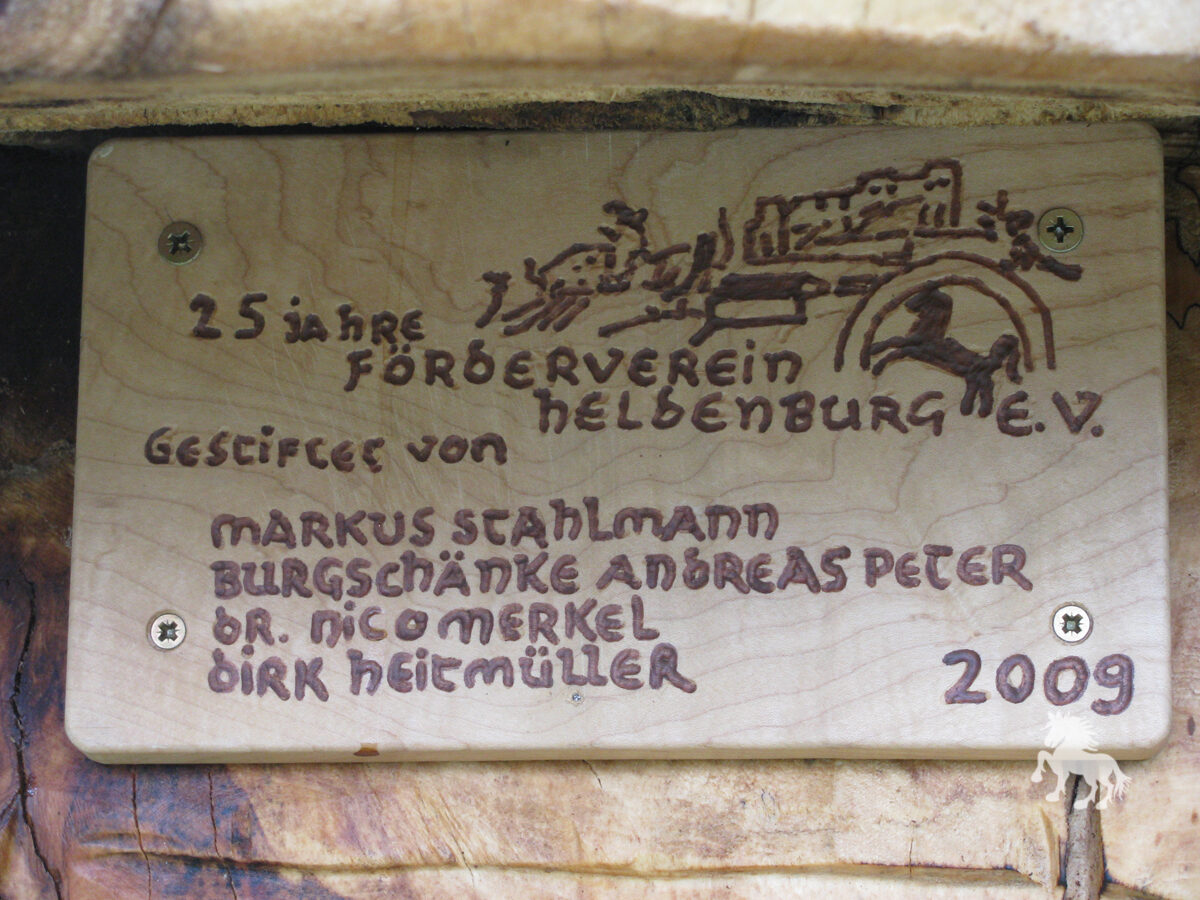 25 Jahre
Förderverein
Heldenburg E.V.
Gestiftet von
Markus Stahlmann
Burgschänke Andreas Peter
Dr. Nico Merkel
Dirk Heitmüller
2009